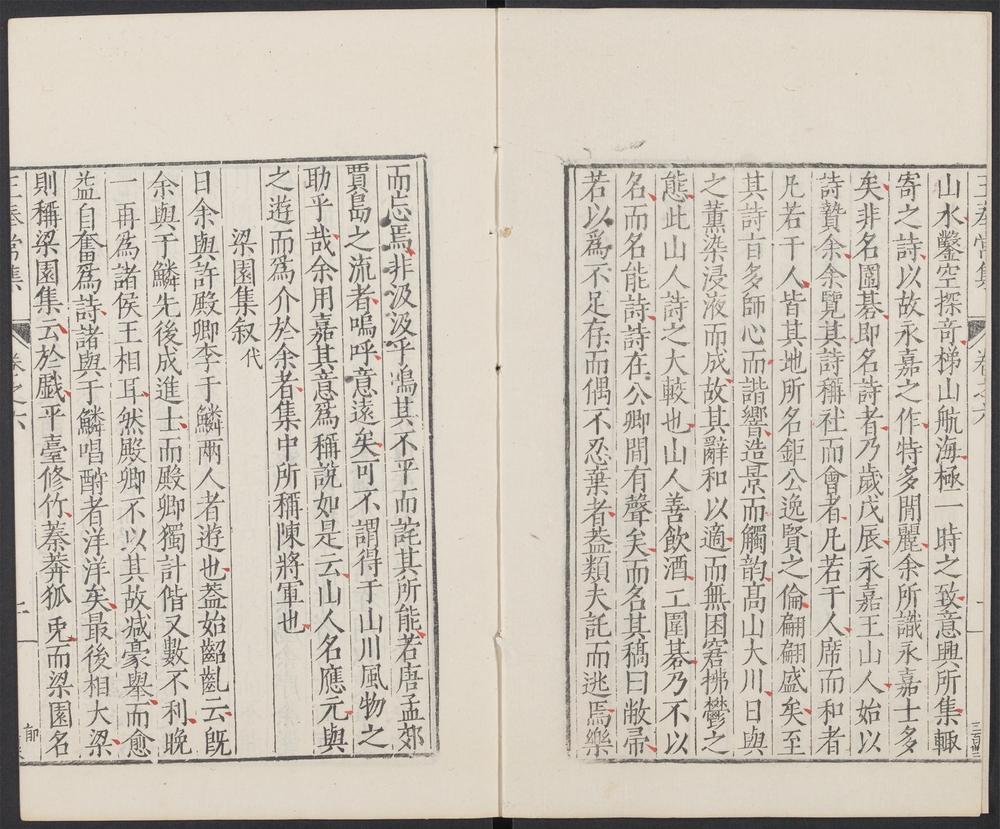 山水鑿空探奇梯山航海極一時之致意興所集輙
寄之詩以故永嘉之作特多閒麗余所識永嘉士多
矣非名圍碁即名詩者乃歲戊辰永嘉王山人始以
詩贄余余覽其詩稱社而會者凡若干人席而和者
凡若干人皆其地所名鉅公逸賢之倫翩翩盛矣至
其詩旨多師心而諧響造景而觸韵高山大川日與
之薫染浸液而成故其辭和以適而無困窘拂鬱之
態此山人詩之大較也山人善飲酒工圍碁乃不以
名而名能詩詩在公卿間有聲矣而名其稿曰敝帚
若以爲不足存而偶不忍棄者葢類夫託而逃焉樂
而忘焉非汲汲乎鳴其不平而詫其所能若唐孟郊
賈島之流者嗚呼意遠矣可不謂得于山川風物之
助乎哉余用嘉其意爲稱說如是云山人名應元與
之遊而爲介於余者集中所稱陳將軍也
梁園集叙代
日余與許殿卿李于鱗兩人者遊也葢始齠齔云旣
余與于鱗先後成進士而殿卿獨計偕又數不利晚
一再爲諸侯王相耳然殿卿不以其故减豪舉而愈
益自奮爲詩諸與于鱗唱酧者洋洋矣最後相大梁
則稱梁園集云於戲平臺修竹蓁莽狐兎而梁園名
卷之六